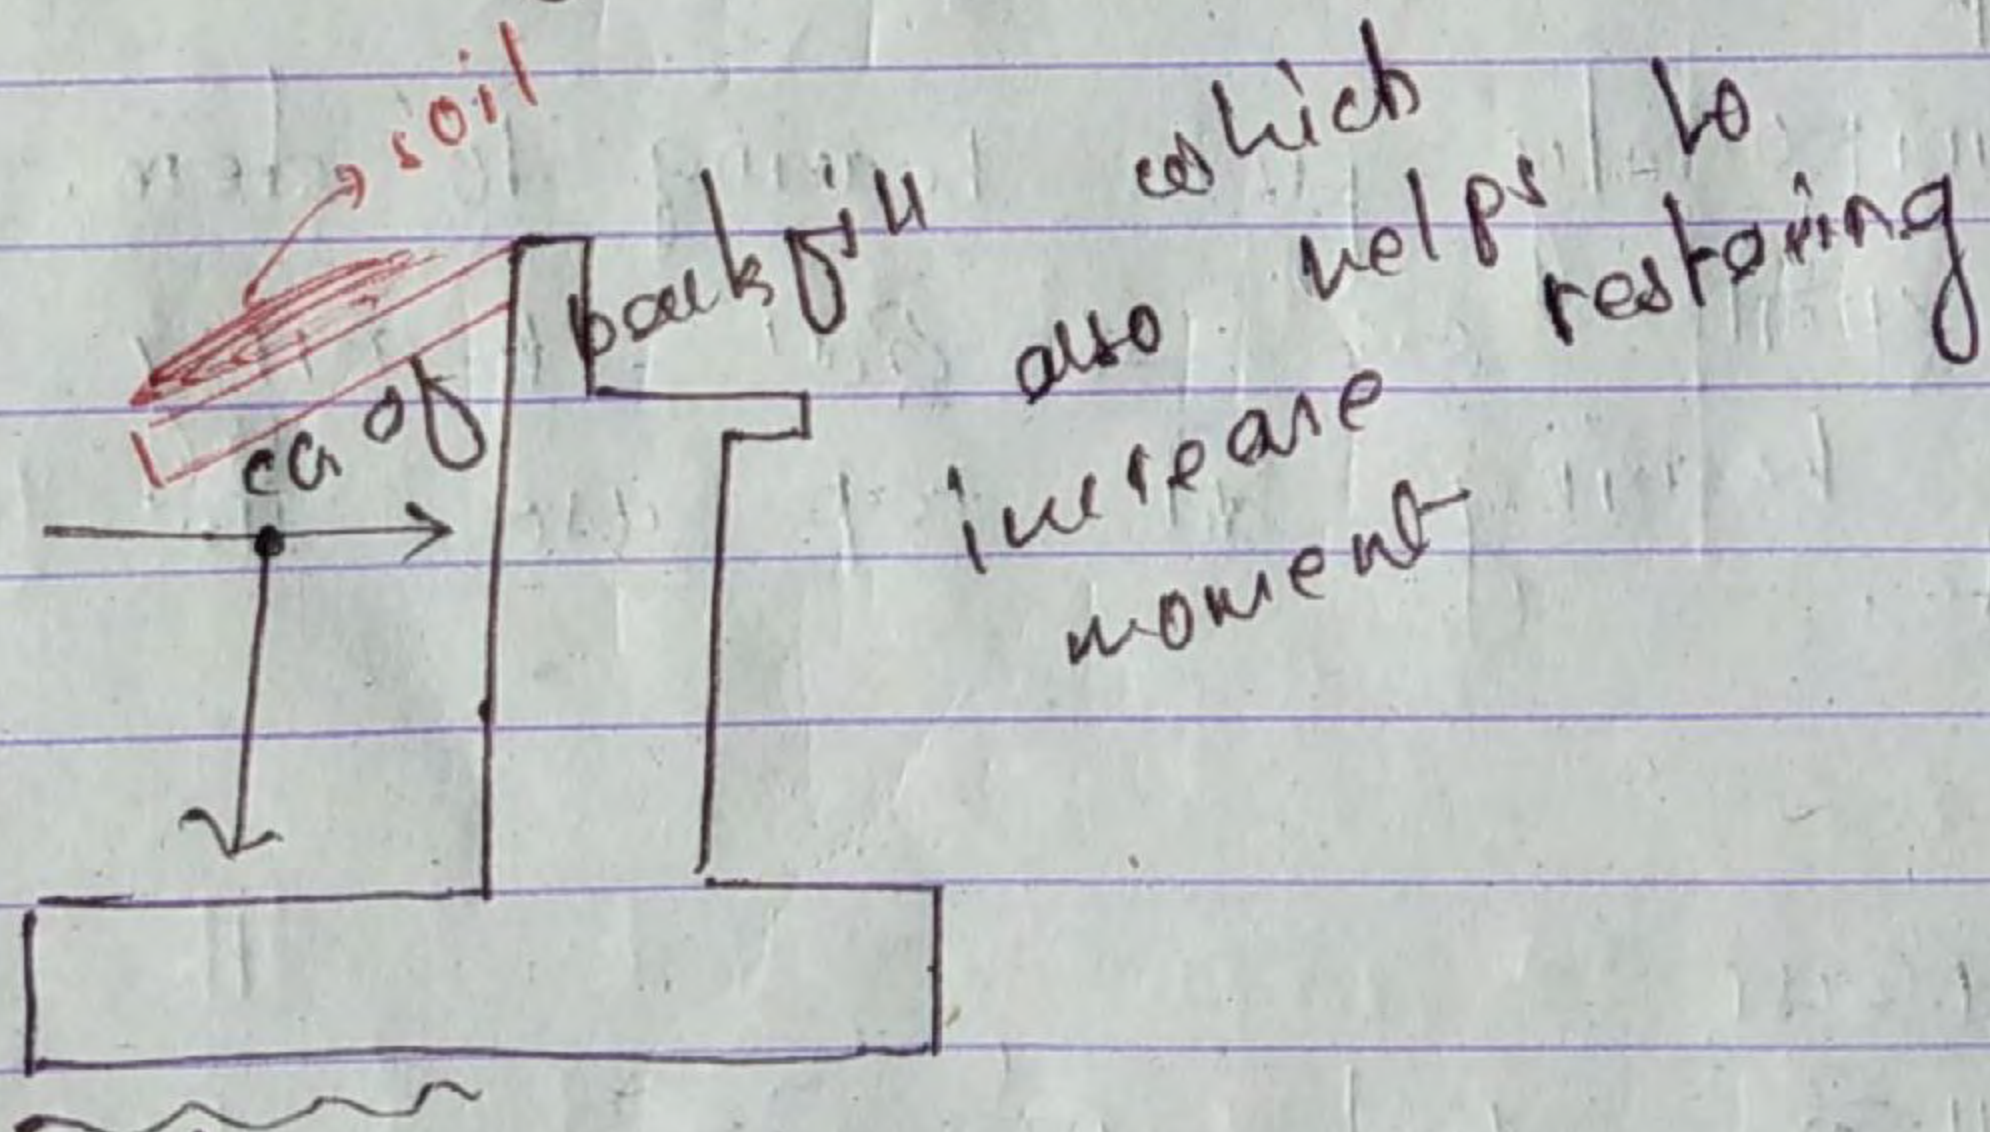 soil
CG of backfill which
also helps to
increase restoring
moment